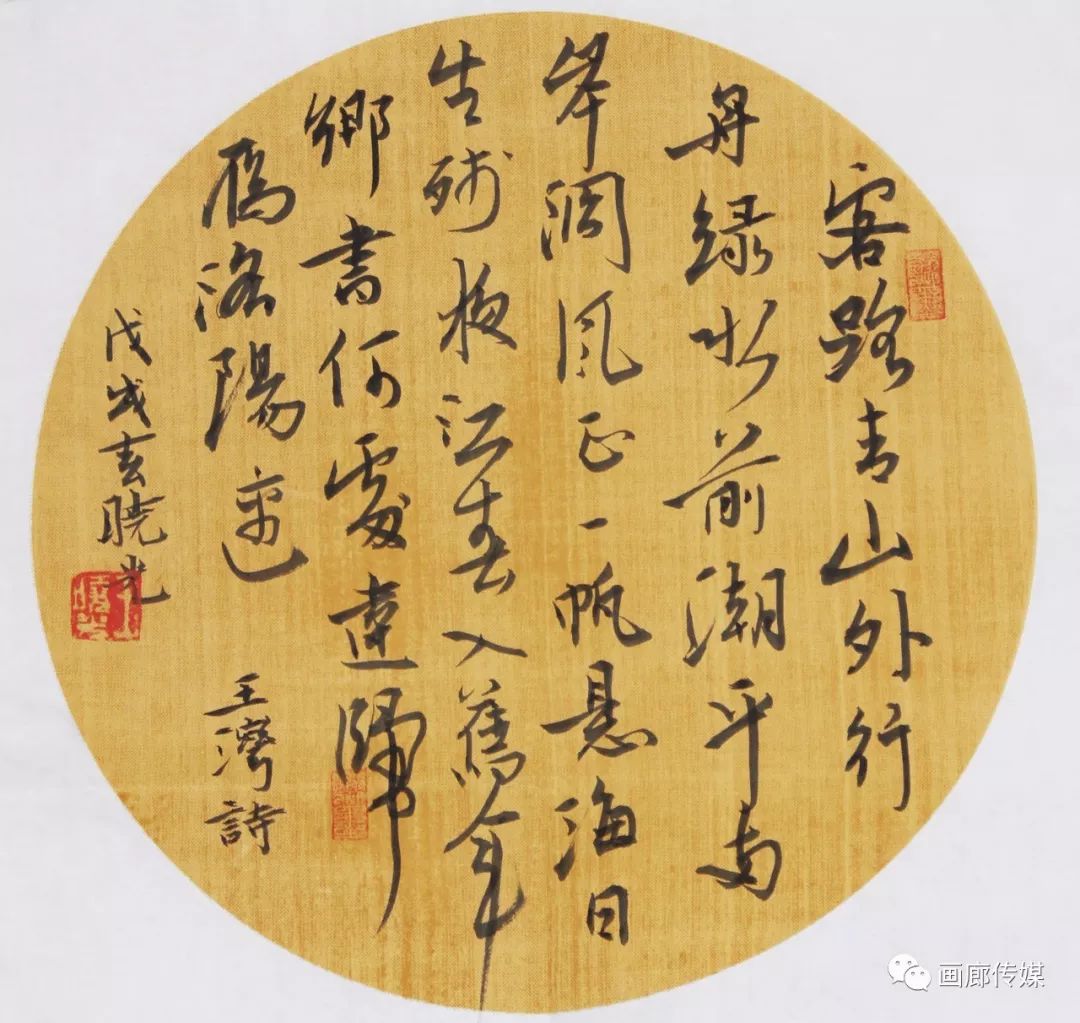 客路青山外行
舟綠水前潮平兩
岸闊風正一帆懸海日
生殘夜江春入舊年
鄉書何處達歸
雁洛陽邊 王灣詩
戊戌 曉光
画廊传媒